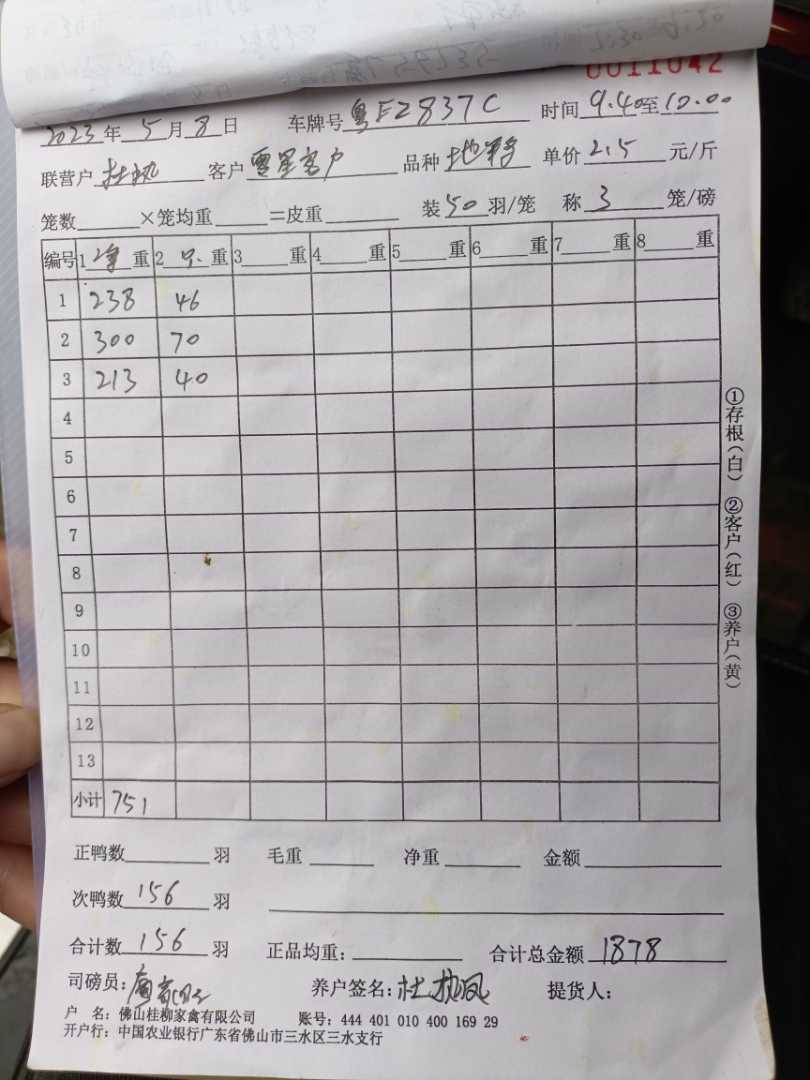 0011042
2023年5月8日 车牌号粤E2837C 时间9.40至10.00
联营户杜执 客户零星客户 品种 单价2.5元/斤
笼数×笼均重=皮重 装50羽/笼 称3笼/磅
编号 1净重 2只重 3重 4重 5重 6重 7重 8重
1 238 46
2 300 70
3 213 40
4
5
6
7
8
9
10
11
12
13
小计 751
①存根(白) ②客户(红) ③养户(黄)
正鸭数羽 毛重 净重 金额
次鸭数156羽
合计数156羽 正品均重: 合计总金额1878
司磅员: 养户签名:杜执凤 提货人:
户 名: 佛山桂柳家禽有限公司 账号: 444 401 010 400 169 29
开户行: 中国农业银行广东省佛山市三水区三水支行